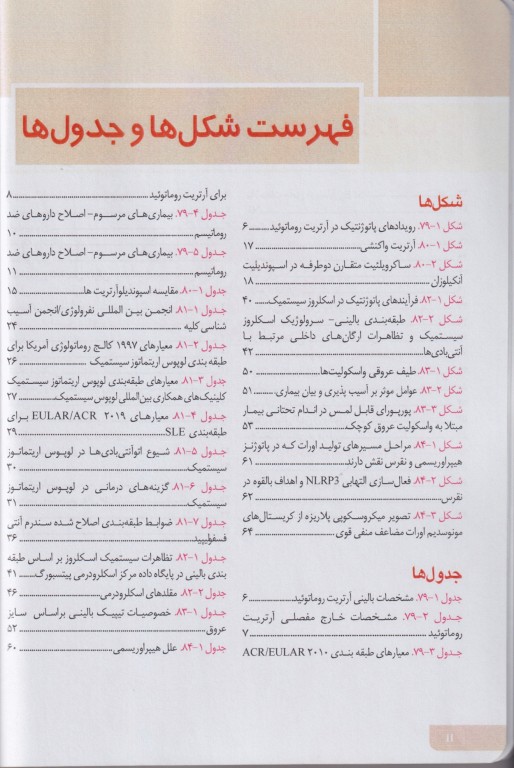 فهرست شکل‌ها و جدول‌ها
شکل‌ها
شکل ۱-۷۹. رویدادهای پاتوژنتیک در آرتریت روماتوئید..........۶
شکل ۱-۸۰. آرتریت واکنشی..........۱۷
شکل ۲-۸۰. ساکرویلئیت متقارن دوطرفه در اسپوندیلیت
آنکیلوزان..........۱۸
شکل ۱-۸۲. فرآیندهای پاتوژنتیک در اسکلروز سیستمیک..........۴۰
شکل ۲-۸۲. طبقه‌بندی بالینی- سرولوژیک اسکلروز
سیستمیک و تظاهرات ارگان‌های داخلی مرتبط با
آنتی‌بادی‌ها..........۴۲
شکل ۱-۸۳. طیف عروقی واسکولیت‌ها..........۵۰
شکل ۲-۸۳. عوامل موثر بر آسیب پذیری و بیان بیماری..........۵۱
شکل ۳-۸۳. پورپورای قابل لمس در اندام تحتانی بیمار
مبتلا به واسکولیت عروق کوچک..........۵۳
شکل ۱-۸۴. مراحل مسیرهای تولید اورات که در پاتوژنز
هیپراوریسمی و نقرس نقش دارند..........۶۱
شکل ۲-۸۴. فعال‌سازی التهابی NLRP3 و اهداف بالقوه در
نقرس..........۶۲
شکل ۳-۸۴. تصویر میکروسکوپی پلاریزه از کریستال‌های
مونوسدیم اورات مضاعف منفی قوی..........۶۴
جدول‌ها
جدول ۱-۷۹. مشخصات بالینی آرتریت روماتوئید..........۶
جدول ۲-۷۹. مشخصات خارج مفصلی آرتریت
روماتوئید..........۷
جدول ۳-۷۹. معیارهای طبقه بندی ACR/EULAR ۲۰۱۰
برای آرتریت روماتوئید..........۸
جدول ۴-۷۹. بیماری‌های مرسوم- اصلاح داروهای ضد
روماتیسم..........۱۰
جدول ۵-۷۹. بیماری‌های مرسوم- اصلاح داروهای ضد
روماتیسم..........۱۱
جدول ۱-۸۰. مقایسه اسپوندیلوآرتریت ها..........۱۵
جدول ۱-۸۱. انجمن بین المللی نفرولوژی/انجمن آسیب
شناسی کلیه..........۲۴
جدول ۲-۸۱. معیارهای ۱۹۹۷ کالج روماتولوژی آمریکا برای
طبقه بندی لوپوس اریتماتوز سیستمیک..........۲۶
جدول ۳-۸۱. معیارهای طبقه‌بندی لوپوس اریتماتوز سیستمیک
کلینیک‌های همکاری بین‌المللی لوپوس سیستمیک..........۲۷
جدول ۴-۸۱. معیارهای EULAR/ACR ۲۰۱۹ برای
طبقه‌بندی SLE..........۲۹
جدول ۵-۸۱. شیوع اتوآنتی‌بادی‌ها در لوپوس اریتماتوز
سیستمیک..........۳۰
جدول ۶-۸۱. گزینه‌های درمانی در لوپوس اریتماتوز
سیستمیک..........۳۱
جدول ۷-۸۱. ضوابط طبقه‌بندی اصلاح شده سندرم آنتی
فسفولیپید..........۳۶
جدول ۱-۸۲. تظاهرات سیستمیک اسکلروز بر اساس طبقه
بندی بالینی در پایگاه داده مرکز اسکلرودرمی پیتسبورگ..........۴۱
جدول ۲-۸۲. مقلدهای اسکلرودرمی..........۴۶
جدول ۱-۸۳. خصوصیات تیپیک بالینی براساس سایز
عروق..........۵۲
جدول ۱-۸۴. علل هیپراوریسمی..........۶۰
۱۱